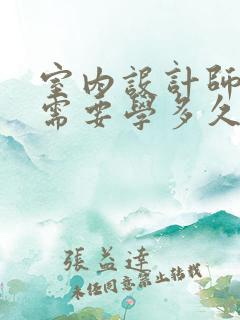 室內設計師
需要學多久
張益達
未经同意禁止转载